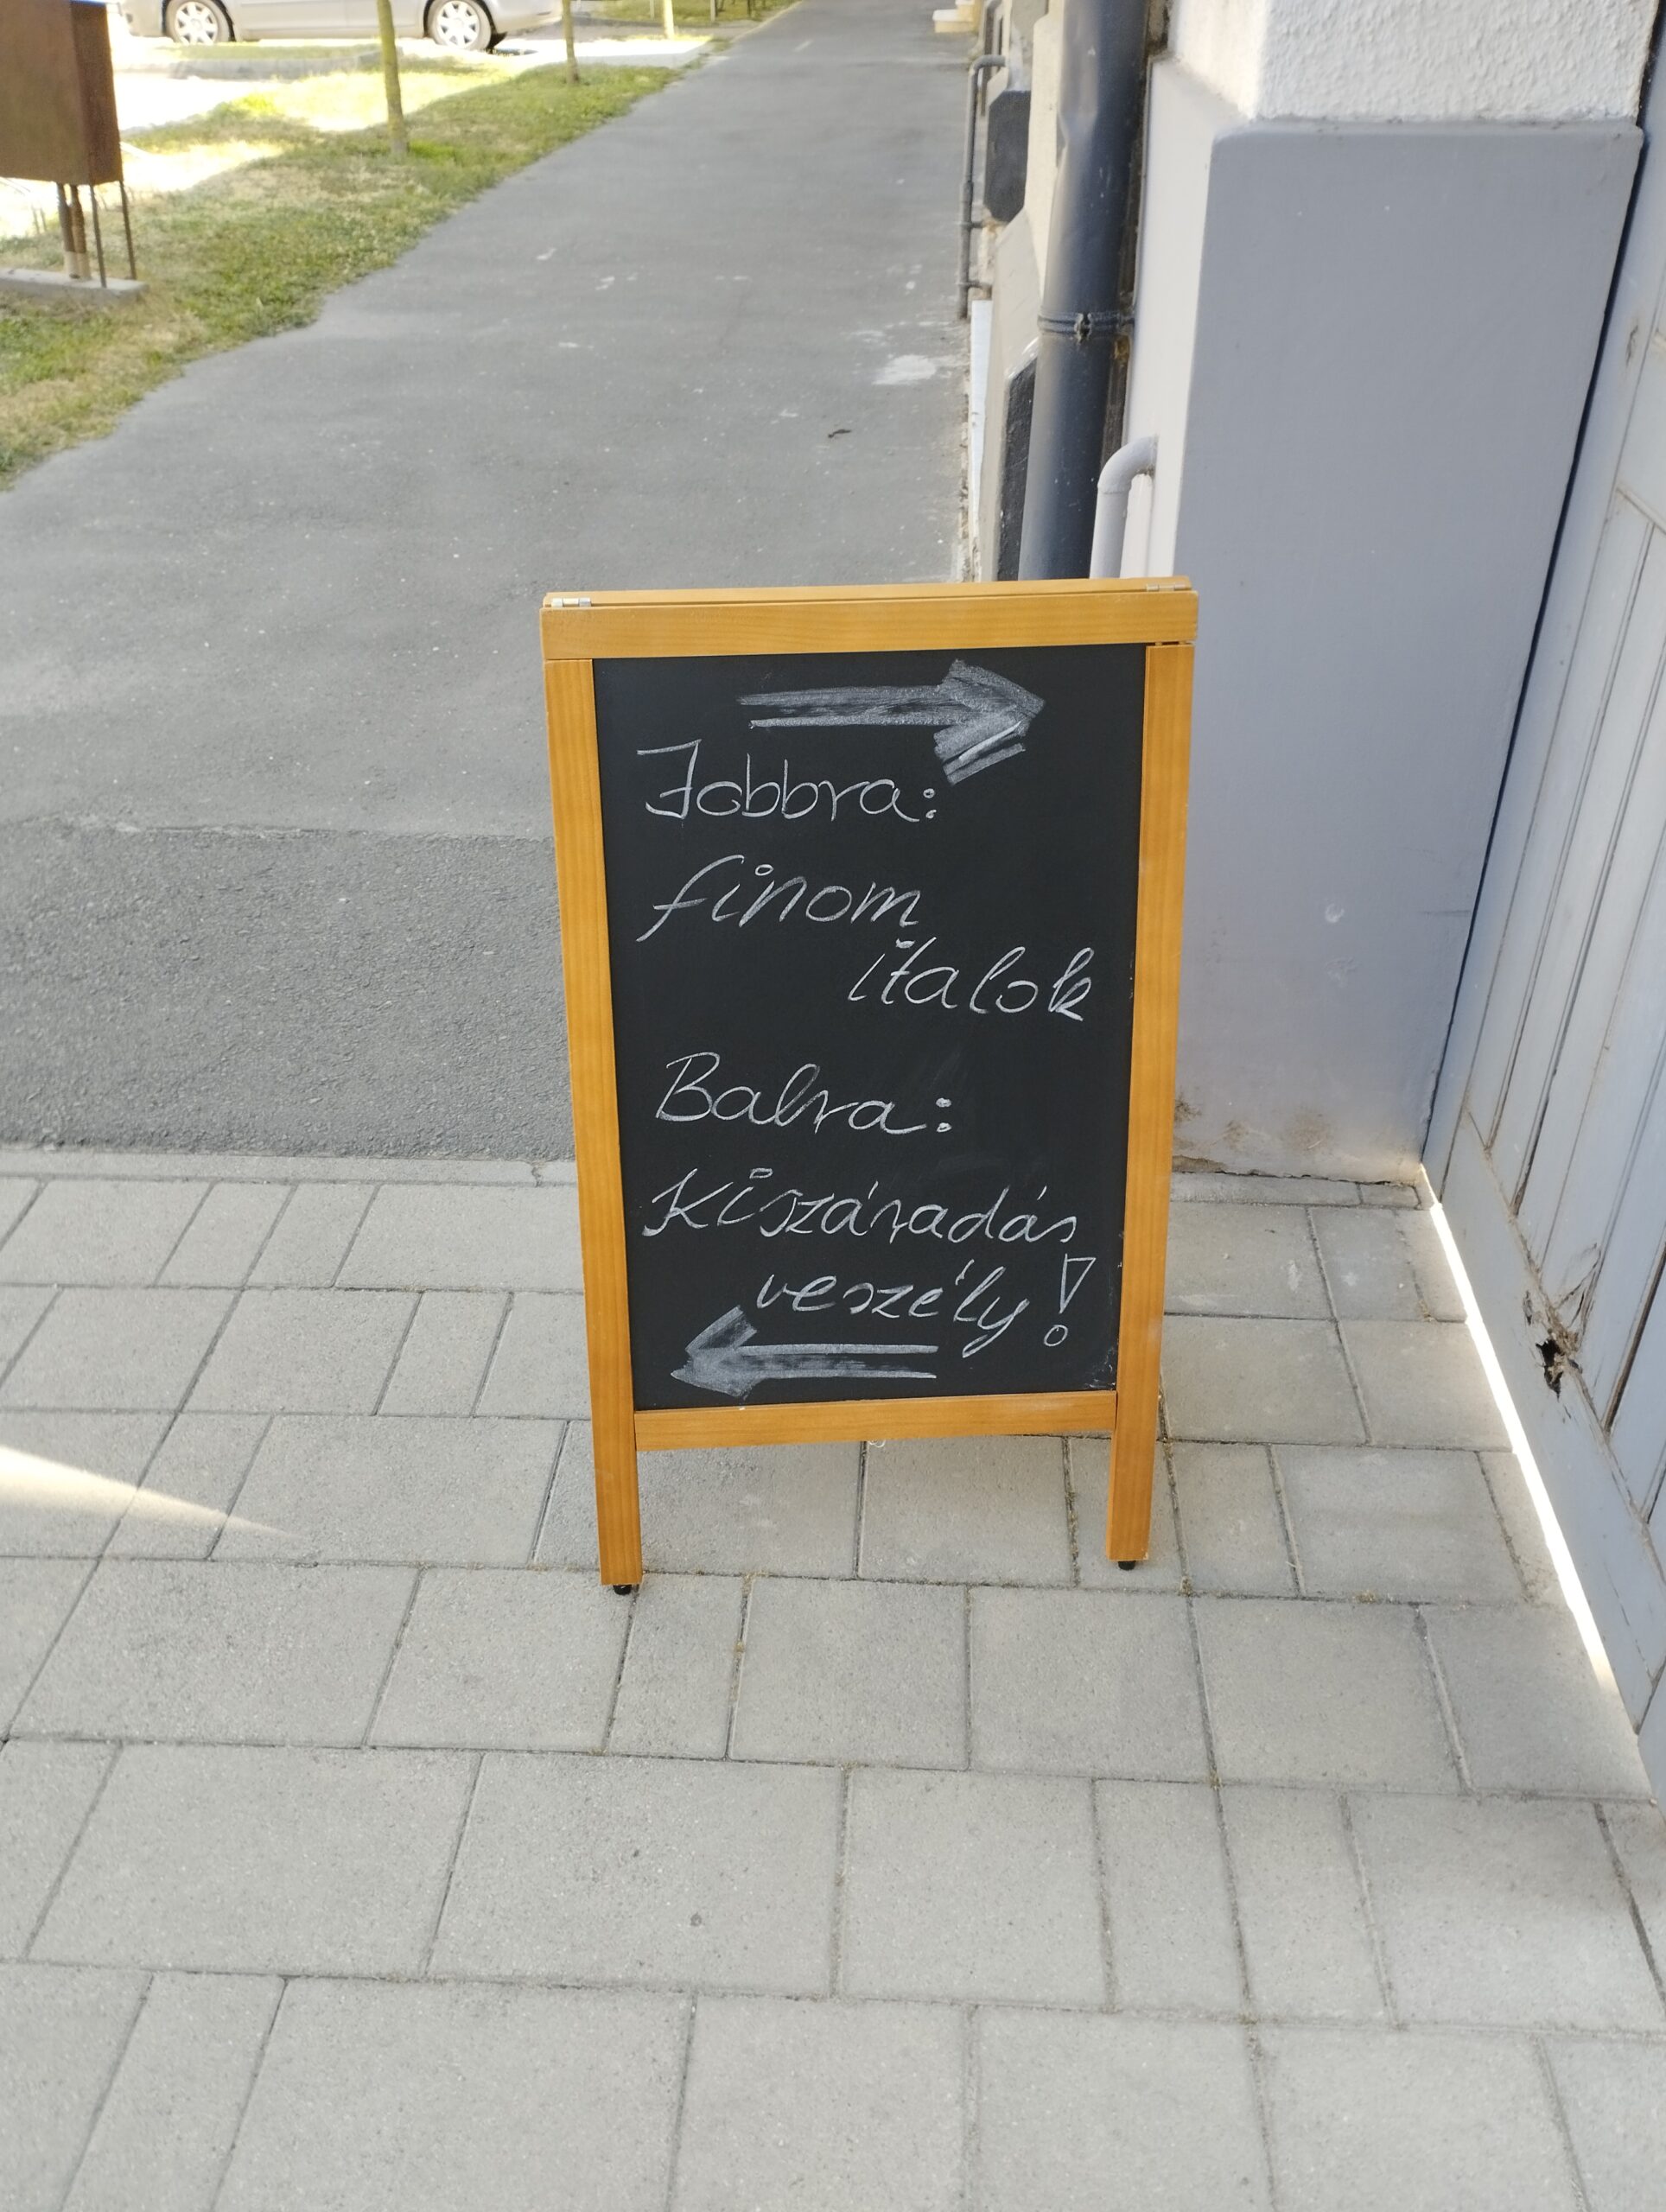 Jobbra:
finom
italok
Balra:
Kiszáradás
veszély!